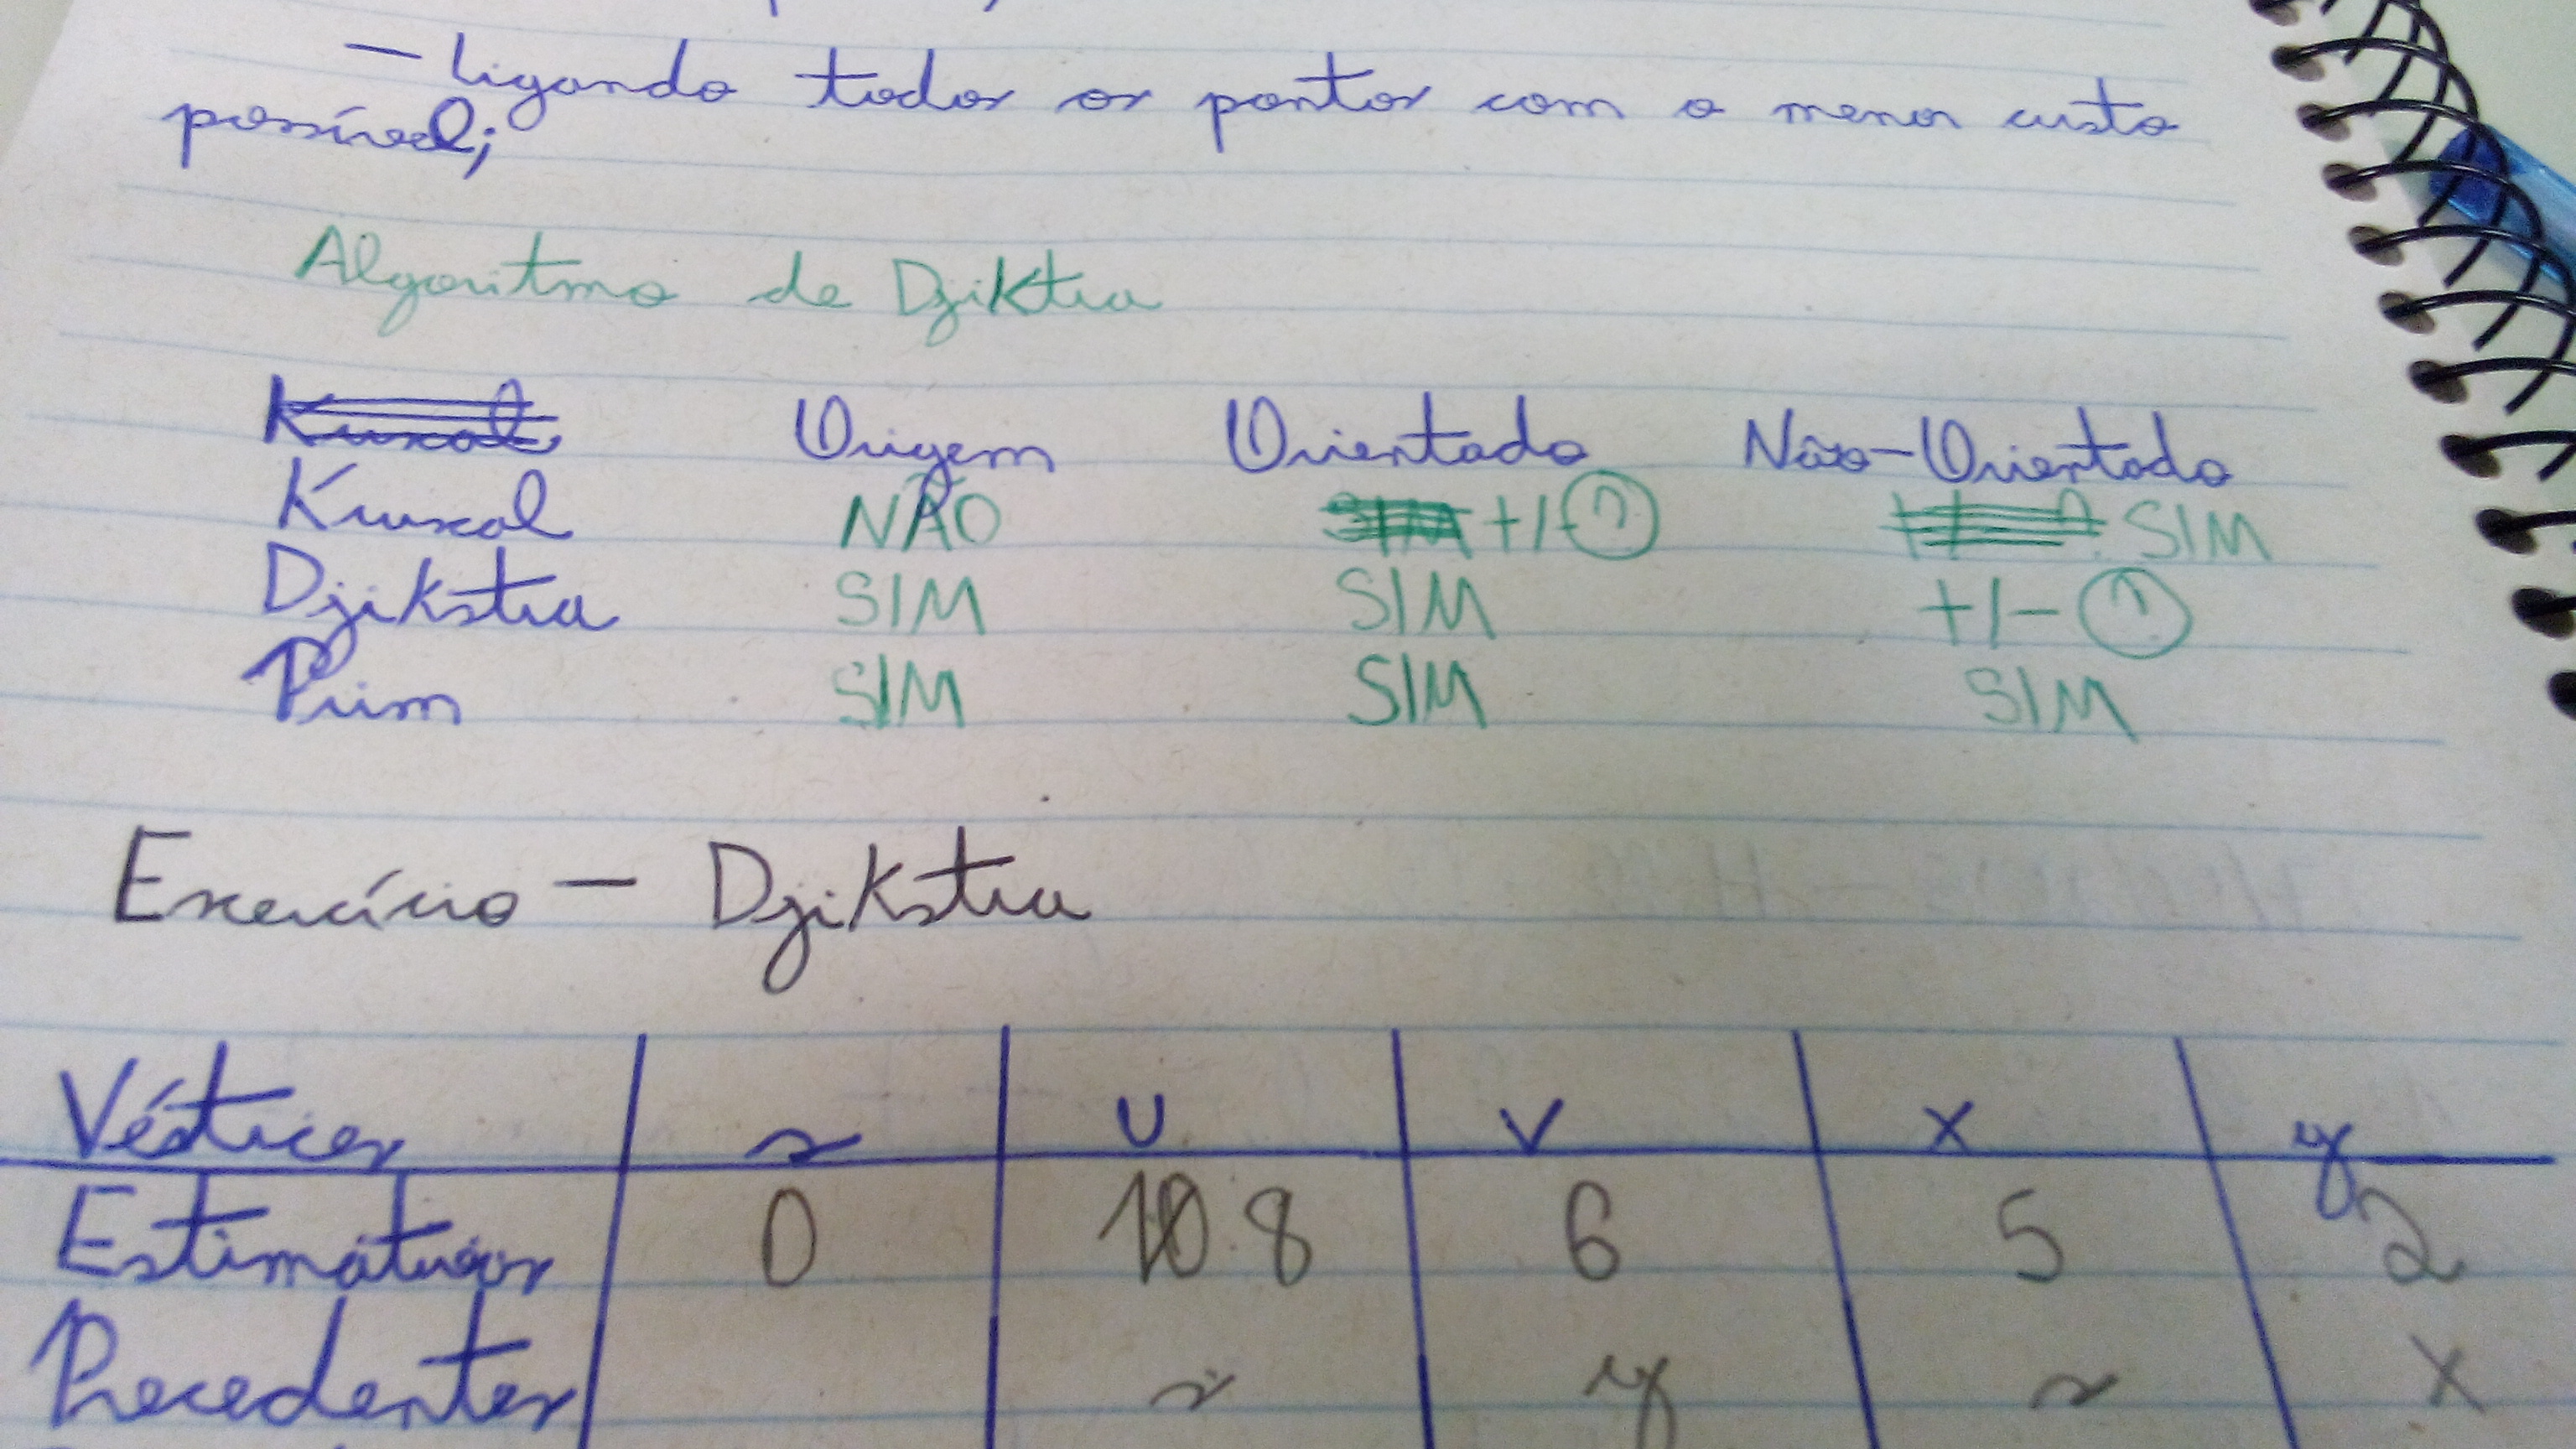 - ligando todos os pontos com o menor custo
possível;
Algoritmo de Djiktra
Kruscal Origem Orientado Não-Orientado
Kruscal NÃO SIM +/- ? SIM
Djikstra SIM SIM +/- ?
Prim SIM SIM SIM
Exercício - Djikstra
Vértices s U V X y
Estimativas 0 10 8 6 5 2
Precedentes s y s X